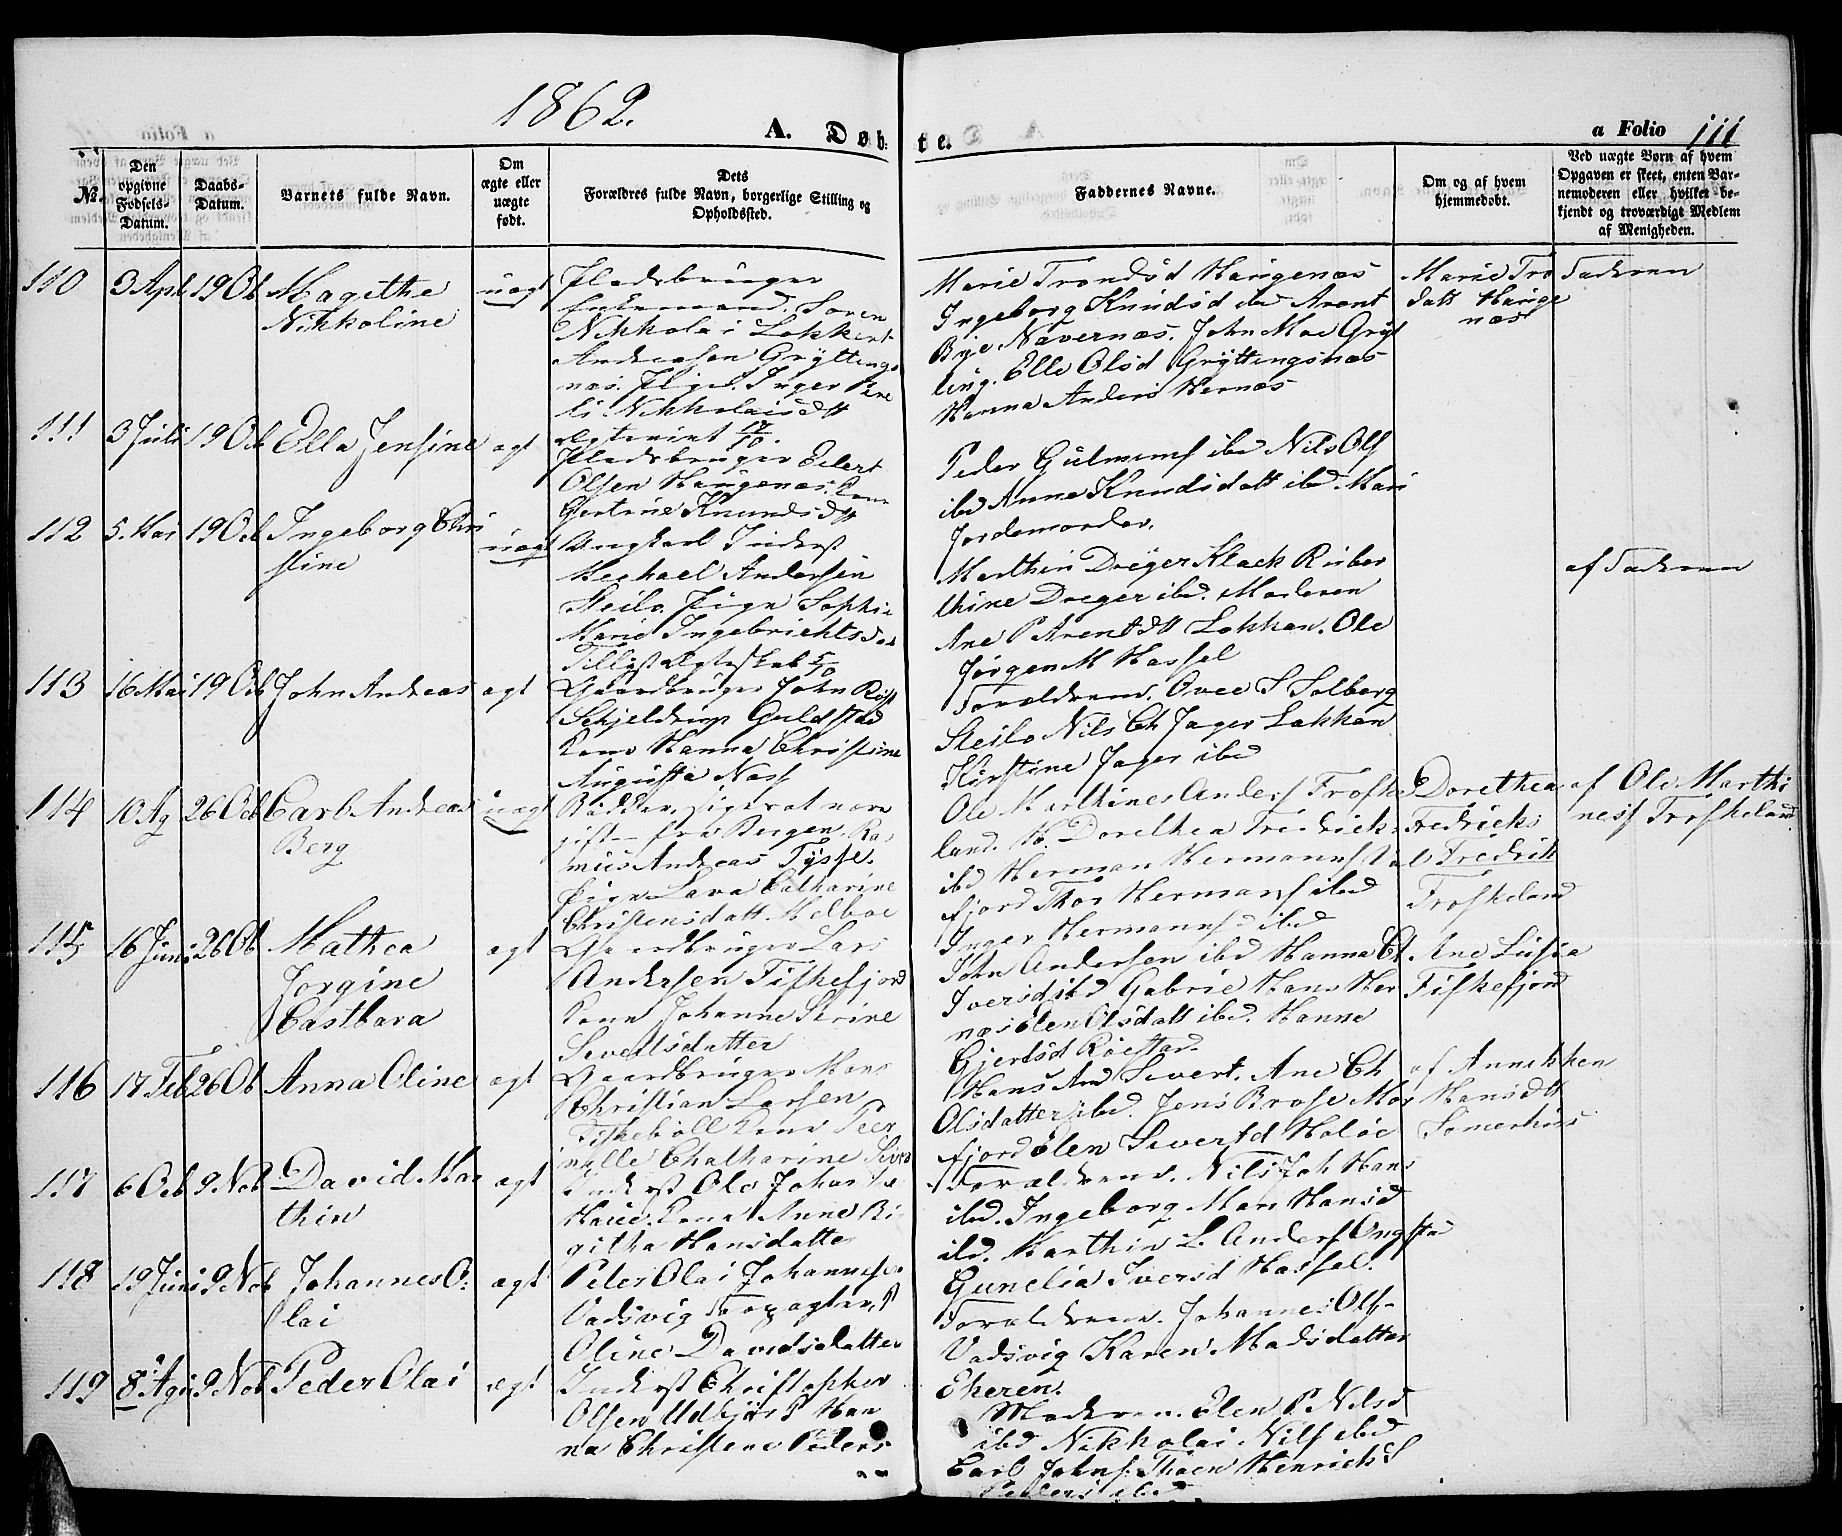 1862.
A. Døb-
te.
a Folio 111
№.
Den opgivne Fødsels-Datum.
Daabs-Datum.
Barnets fulde Navn.
Om ægte eller uægte født.
Dets Forældres fulde Navn, borgerlige Stilling og Opholdssted.
Faddernes Navne.
Om og af hvem hjemmedøbt.
Ved uægte Børn af hvem Opgaven er skeet, enten Barnemoderen eller hvilket bekjendt og troværdigt Medlem af Menigheden.
110 3 Apl 19 Ob Magithe
Nikkoline
uægt
Pladsbruger
Enkemand Soren
Nikkolai Lokkert
Andreasen Grÿttings
næs. Pige Inger Pene
li Nikkolaisdtt
Marie Trondsd Haugenæs
Ingeborg Knudsd ibd Arent
Bye Navernæs. John Moe Grÿt
ting. Elle Olsd Grÿttingsnæs
Hanna Anders Hernæs
Marie Tro
datt Hauge
næs
Faderen
111 3 Juli 19 Ob Ella Jensine ægt
ægteviet 17/10.
Pladsbruger Eilert
Olsen Haugenæs. Kone
Gertrue Knudsdtt
Peder Gulmunsf ibd Nils Olf
ibd Anna Knudsdatt ibd. Mari
Jordemoder.
112 5. Mai 19 Ob Ingeborg Chri
stine
uægt
Ungkarl Inderst
Mechael Andersen
Steilo. Pige Sophie
Marie Ingebrichtsdat
Tillyst Ægteskab 5/10
Marthin Dreÿer Klack Ruber
thine Dreyer ibd. Moderen
Ane P Arentdtt Lokkan. Ole
Jørgen M Hassel
af Faderen
113 16 Mai 19 Ob John Andreas ægt
Gaardbruger John Røst
Schjeldrup Guldstad
Kone Hanna Christine
Augusta Nass
Foraldrene. Ovee S Solberg
Steilo Nils Ch Jager Lokkan
Kirstine Jager ibd
114 10 Ag 26 Ob Carl Andreas
Berg
uægt
Bødker, siger at være
gift fra Bergen Ra-
mus Andreas Tÿsse.
Pige Lava Catharine
Christensdatt Melboe
Ole Marthines Andersf Froske
land. K. Dorethea Fredriks
ibd Herman Hermansf Va
fjord Thor Hermansf ibd
Inger Hermansd ibd
Dorethea
Fredriks
Fredrik
Froskeland
af Ole Marthi
nesf Froskeland
115 16 Juni 26 Ob Mathea
Jorgine
Castbara
ægt
Gaardbruger Lars
Andersen Fiskefjord
Kone Johanne Serine
Sevelsdatter
John Andersen ibd Hanna Ch
Iversd ibd Gabrie Hans Her
næs Elen Olsdatt ibd. Hanna
Gjertsd Røestad.
Ane Lusia
Fiskefjord
116 17 Feb 26 Ob Anna Oline ægt
Gaardbruger Hans
Christian Larsen
Fiskeboll Kone Peer
nille Chatharine Siver
Hans And Sivert. Ane Ch
Olsdatter ibd. Jens Brose Mor
fjord Elen Sivertsd Holøe
af Annikken
Hansdtt
Somerhus
117 6 Ocb 9 Nob David Mar
thin
ægt
Inderst Ole Johs
Haue. Kone Anne Bi-
githa Hansdatter
Foraldrene. Nils Joh Hans
ibd. Ingeborg Mare Hansd
ibd. Marthin L. Andersf Ongsta
Gunelia Iversd Hassel.
118 19 Juni 9 Nob Johannes O-
lai
ægt
Peter Olai Johannesen
Vadsvig Forpagter, K
Oline Davidsdatter
Foraldrene. Johannes Olf-
Vadsvig Karen Madsdatter
Ekeren.
119 8 Agu 9 Nob Peder Olai ægt
Inderst Christopher
Olsen Udkjør K Han
na Christene Peders
Moderen. Elen P Nilsd
ibd Nikkolai Nilsf ibd
Carl Johnsf. Thoen Henrich S
Peders ibd